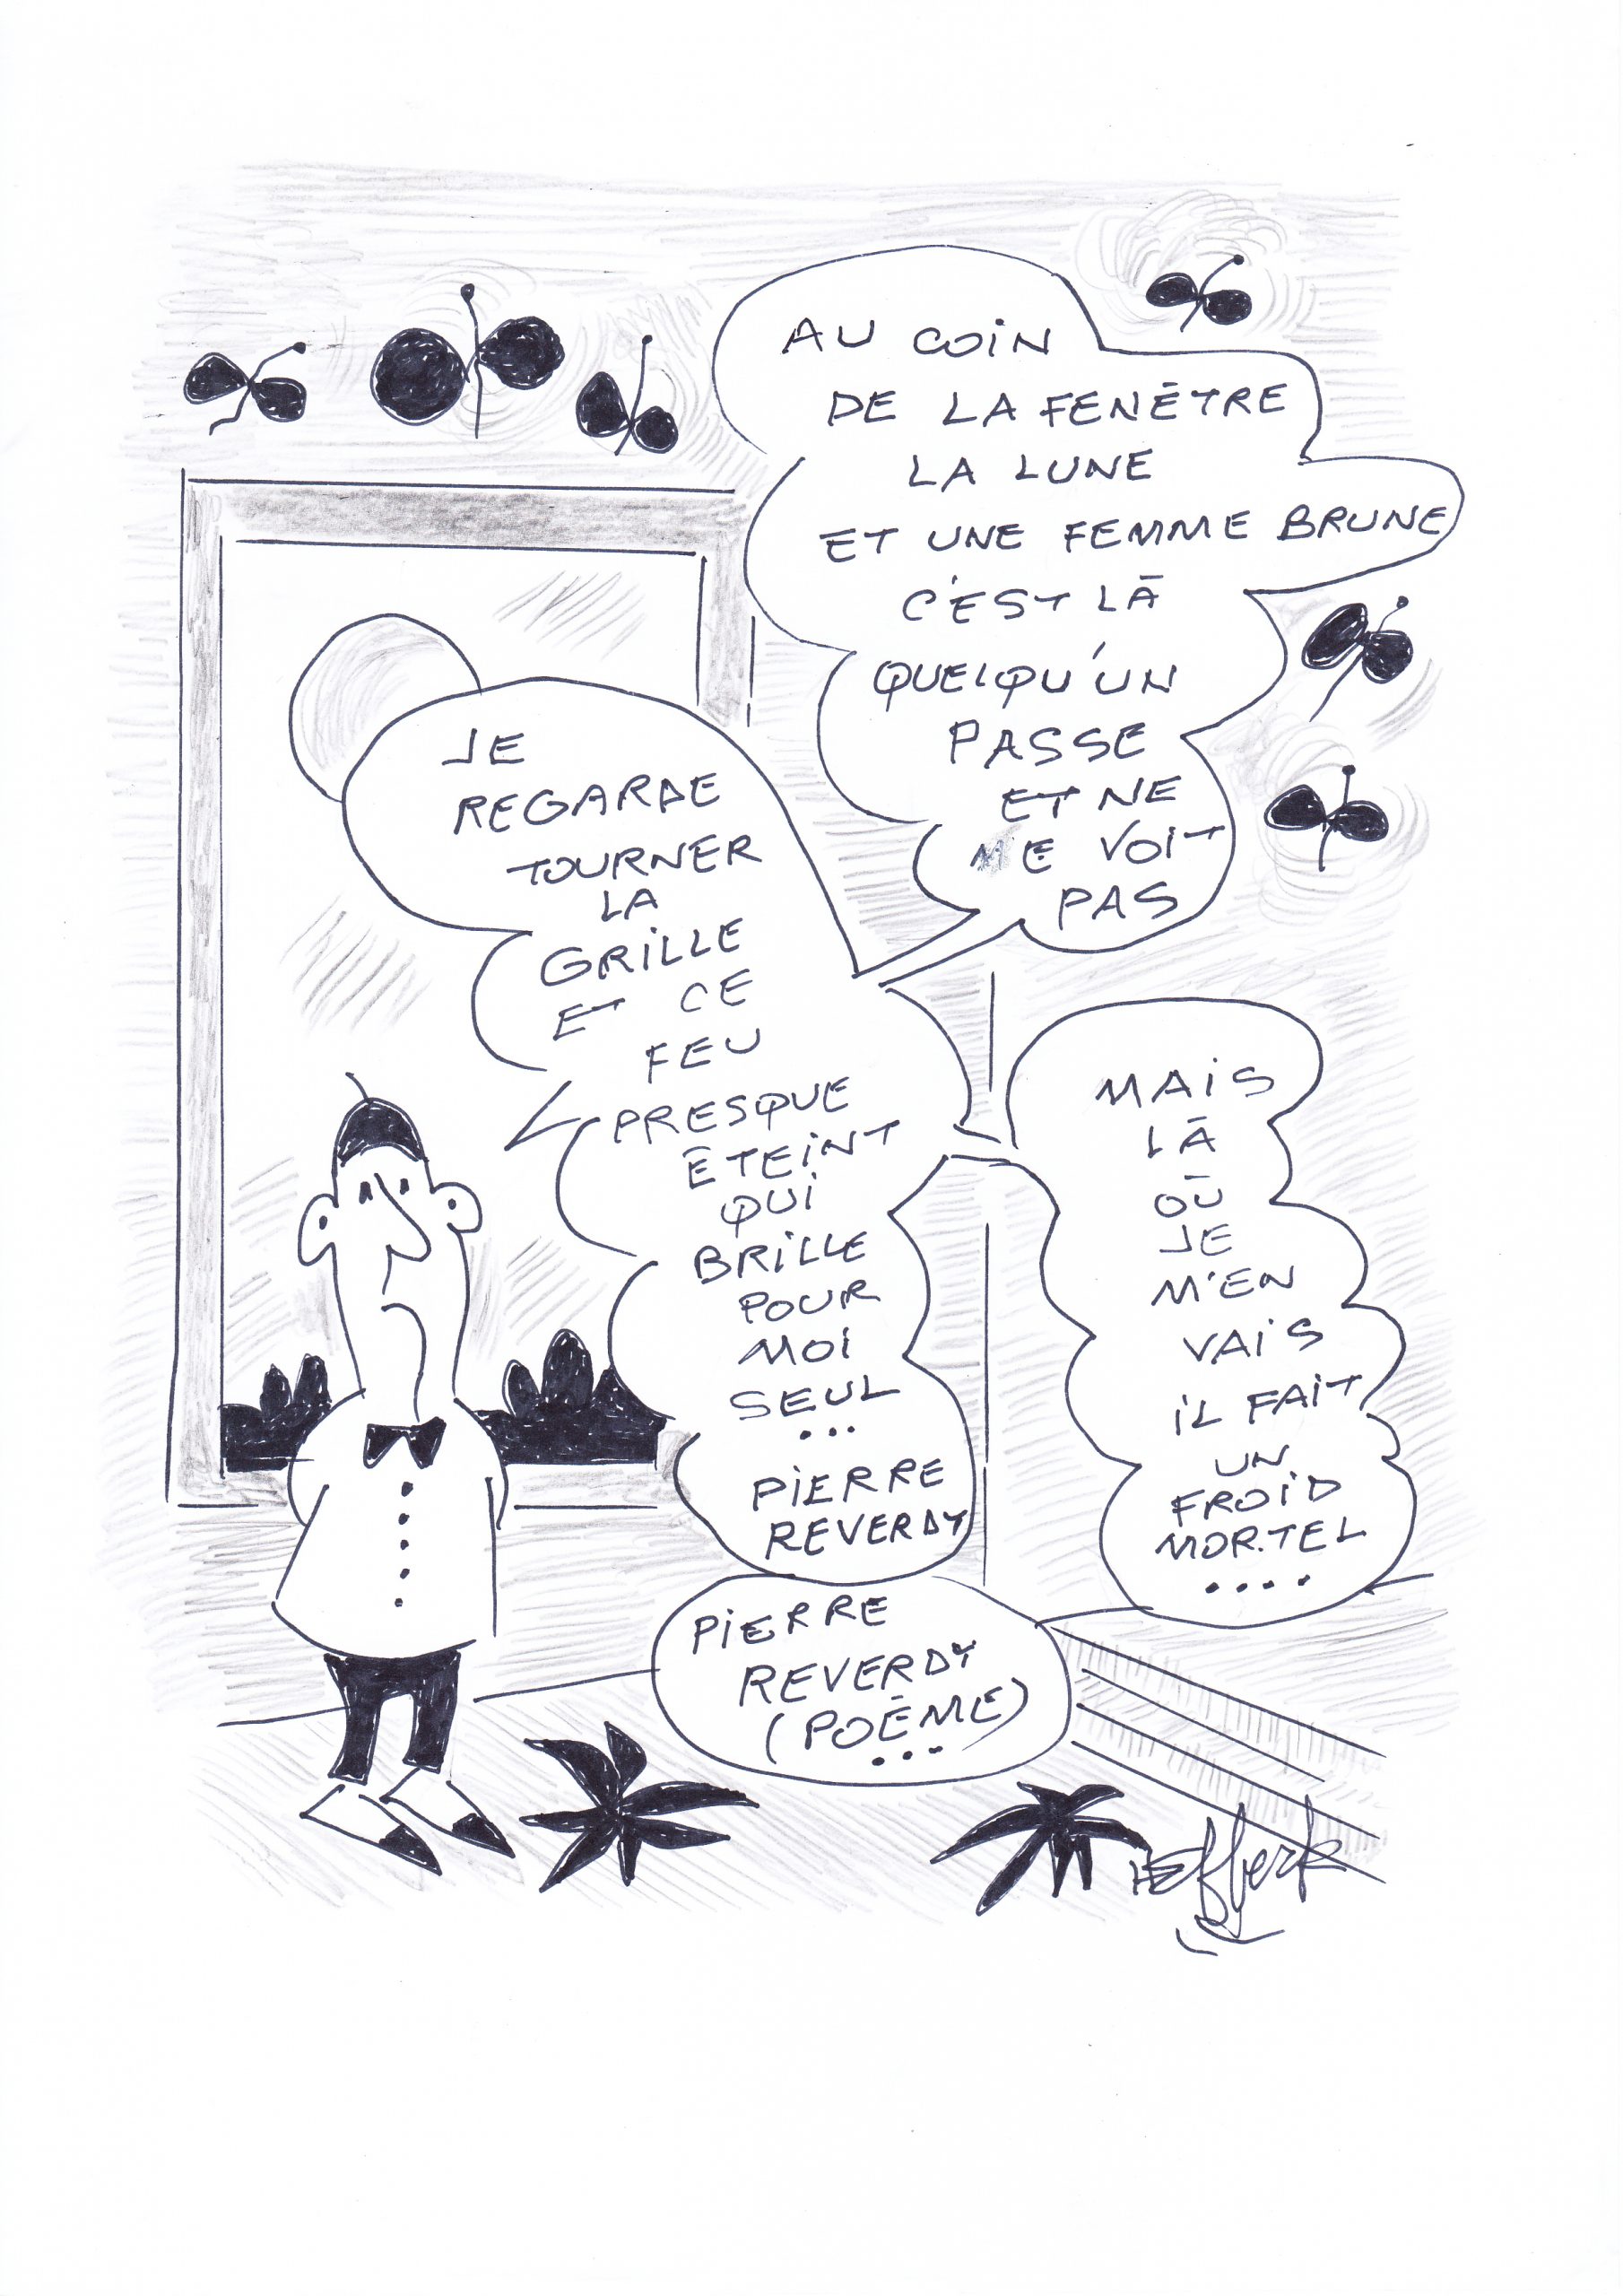 AU COIN
DE LA FENÊTRE
LA LUNE
ET UNE FEMME BRUNE
C'EST LÀ
QUELQU'UN
PASSE
ET NE
ME VOIT
PAS
JE
REGARDE
TOURNER
LA
GRILLE
ET CE
FEU
PRESQUE
ÉTEINT
QUI
BRILLE
POUR
MOI
SEUL
...
PIERRE
REVERDY
MAIS
LÀ
OÙ
JE
M'EN
VAIS
IL FAIT
UN
FROID
MORTEL
....
PIERRE
REVERDY
(POÈME)
...